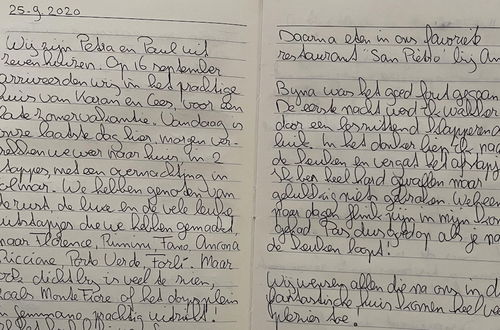 25.9.2020
Wij zijn Petra en Paul uit
zevenhuizen. Op 16 september
arriveerden wij in het prachtige
huis van Karan en Cees, voor een
late zomervakantie. Vandaag is
onze laatste dag hier, morgen ver-
trekken we weer naar huis, in 2
etappes, met een overnachting in
Colmar. We hebben genoten van
de rust, de luxe en de vele leuke
uitstapjes die we hebben gemaakt,
naar Florence, Rimini, Fano, Ancona
Riccione, Porto Verde, Forlì. Maar
ook dichtbij is veel te zien,
zoals Monte Fiore of het dorpsplein
in Gemmano, prachtig uitzicht!
Daarna eten in ons favoriet
restaurant "San Pietro" bij An
Bijna was het goed fout gegaan
De eerste nacht werd ik wakker
door een loszittend klapperend
luik. In het donker liep ik naar
de keuken en vergat het afstapje
Ik ben heel hard gevallen maar
gelukkig niets gebroken. Wel een
paar dagen flink pijn in mijn
gehad. Pas dus op als je na
de keuken loopt!
Wij wensen allen die na ons in d
fantastische huis komen heel v
plezier toe!